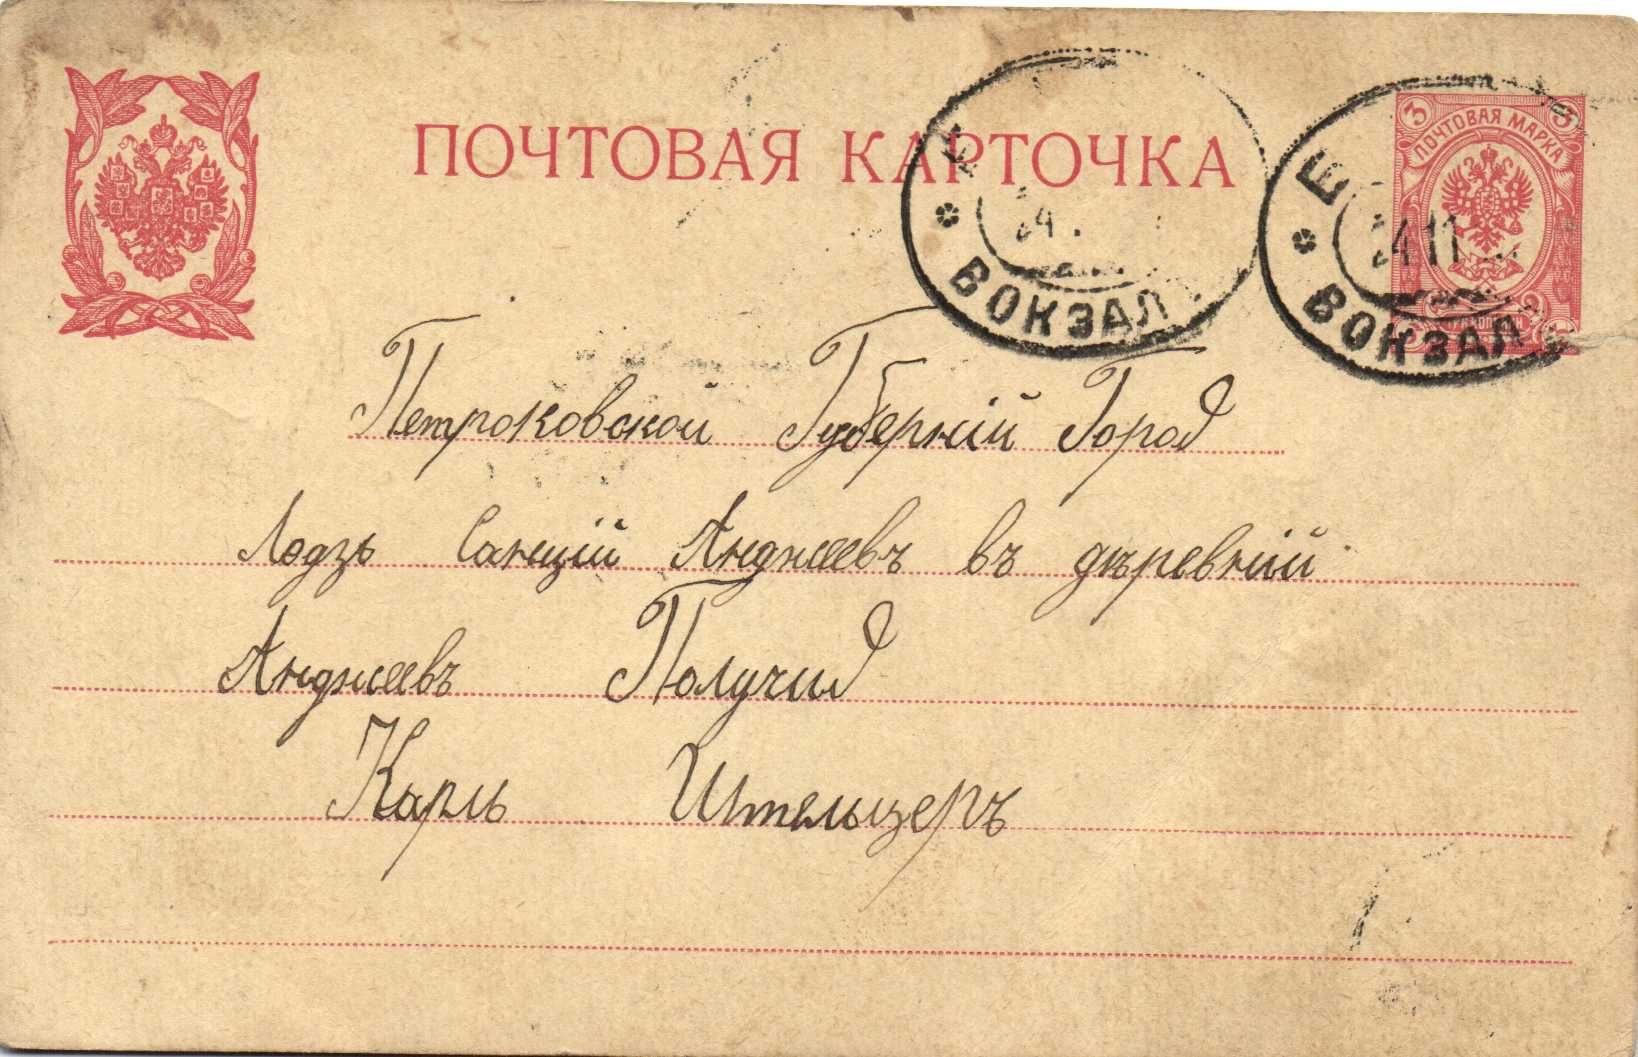 ПОЧТОВАЯ КАРТОЧКА
3 ПОЧТОВАЯ МАРКА 3
24
ВОКЗАЛ
24 11
ВОКЗАЛ
Петроковской Губерній Город
Лодзь Санцій Анджеевъ въ дѣревній
Анджеевъ Получид
Карль Штельцеръ